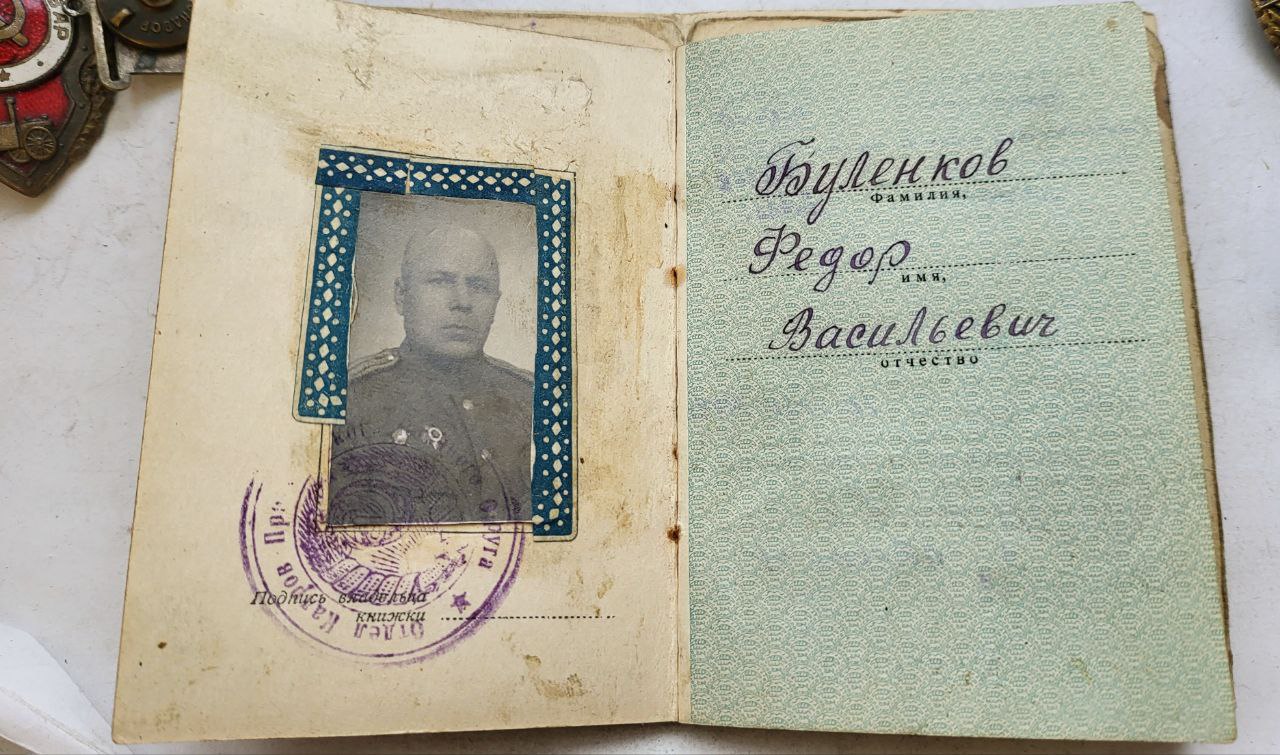 Подпись владельца
книжки
Отдел Кадров
округа
Буленков
Фамилия,
Федор
имя,
Васильевич
отчество